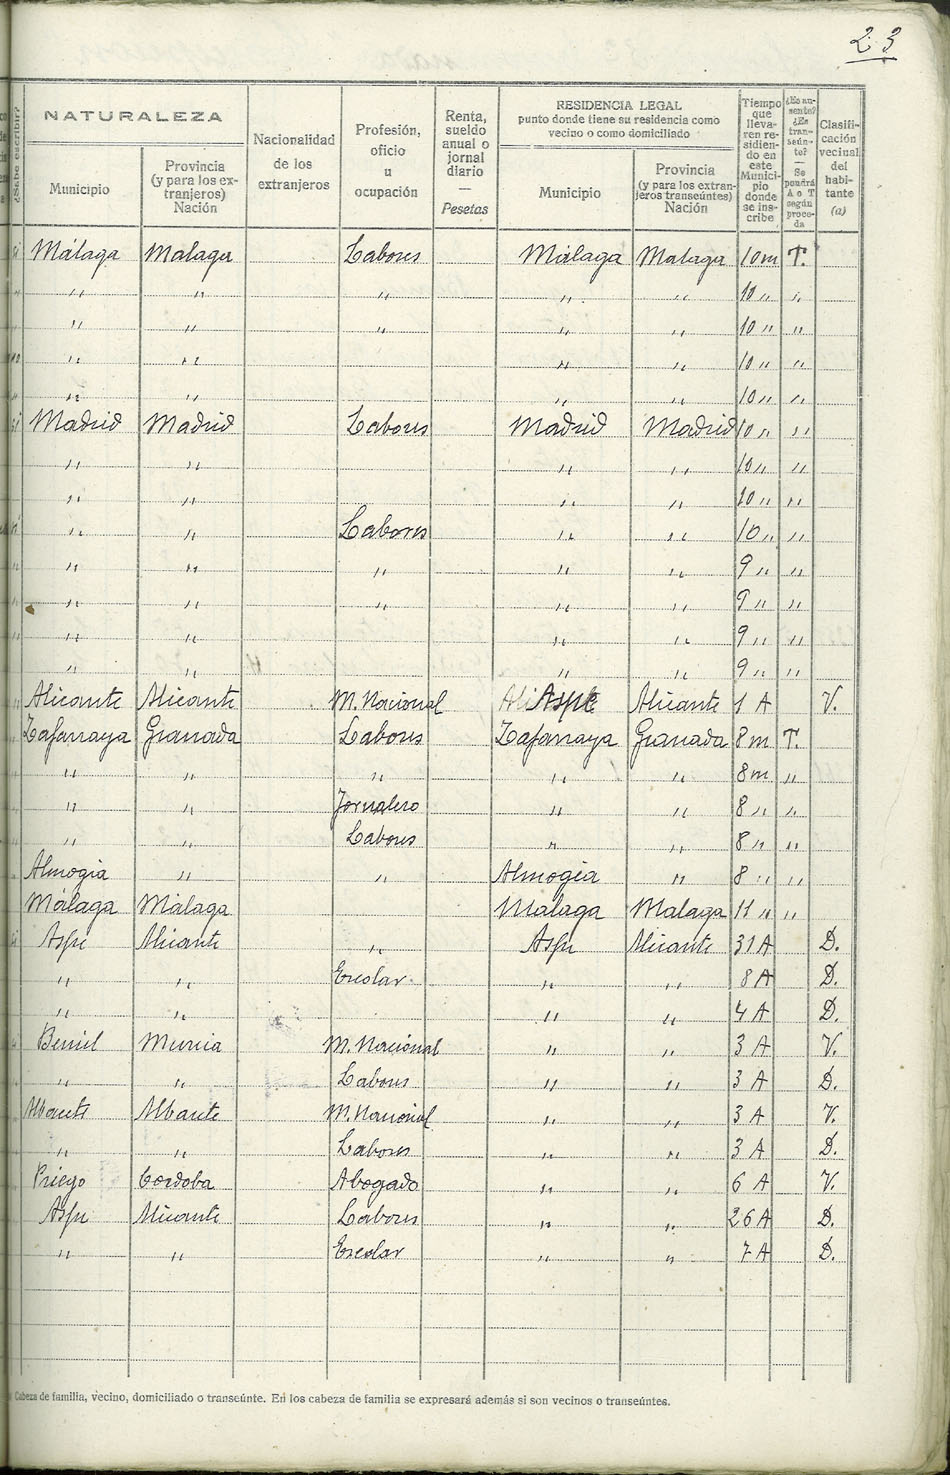 23
¿Sabe escribir?
NATURALEZA
Municipio
Provincia (y para los extranjeros) Nación
Nacionalidad de los extranjeros
Profesión, oficio u ocupación
Renta, sueldo anual o jornal diario — Pesetas
RESIDENCIA LEGAL
punto donde tiene su residencia como vecino o como domiciliado
Municipio
Provincia (y para los extranjeros transeúntes) Nación
Tiempo que llevaren residiendo en este Municipio donde se inscribe
¿Es ausente? ¿Es transeúnte? — Se pondrá A o T según proceda
Clasificación vecinal del habitante (a)
Málaga Malaga Labores Málaga Malaga 10 m T.
" " " " " 10 " "
" " " " " 10 " "
" " " " 10 " "
" " " " 10 " "
Madrid Madrid Labores Madrid Madrid 10 " "
" " " " 10 " "
" " " " 10 " "
" " Labores " " 10 " "
" " " " " 9 " "
" " " " " 9 " "
" " " " 9 " "
" " " " 9 " "
Alicante Alicante M. Nacional Aspe Alicante 1 A V.
Zafarraya Granada Labores Zafarraya Granada 8 m T.
" " " " " 8 m "
" " Jornalero " " 8 " "
" " Labores " " 8 " "
Almogia " " Almogia " 8 " "
Málaga Málaga Malaga Malaga 11 " "
Aspe Alicante " Aspe Alicante 31 A D.
" " Escolar " " 8 A D.
" " " " 4 A D.
Beniel Murcia M. Nacional " " 3 A V.
" " Labores " " 3 A D.
M. Nacional " " 3 A V.
" " Labores " " 3 A D.
Priego Cordoba Abogado " " 6 A V.
Aspe Alicante Labores " " 26 A D.
" " Escolar " " 7 A D.
Cabeza de familia, vecino, domiciliado o transeúnte. En los cabeza de familia se expresará además si son vecinos o transeúntes.